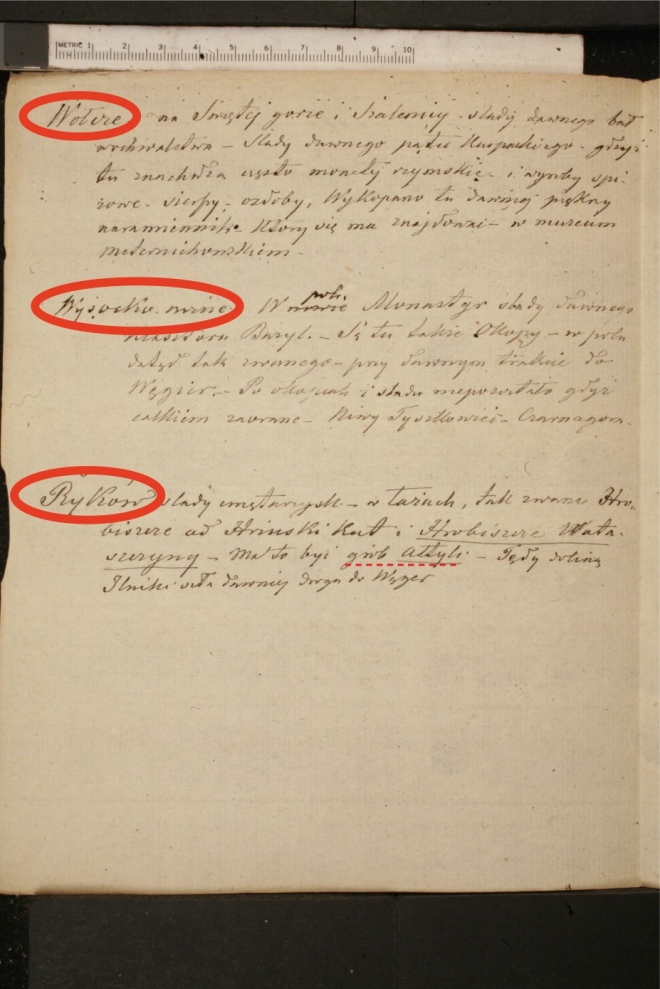 METRIC 1 2 3 4 5 6 7 8 9 10
Wołcze na Świętej górze i Szalonej - ślady dawnego bał
wochwalstwa - Ślady dawnego
tu znachodzą często monety rzymskie - i wyroby spi
żowe - sierpy - ozdoby, Wykopano tu dawniej piękny
naramiennik Który się ma znajdować - w muzeum
meternichowskiem -
Wysocko niżne W polu Monastyr ślady dawnego
klasztoru Bazyl. - Są tu także Okopy - w polu
dotąd tak zwanego - przy dawnym trakcie do
Węgier. - Po okopach i śladu niepozostało gdyż
całkiem zaorane - Niwy Tyszkowieć - Czarnagora.
Ryków ślady cmętarzysk - w łazach, tak zwane Hro-
biszcze od Hrinski Kut i Hrobiszcze Wata-
szczyny - Ma to być grób Attyli - Tędy doliną
Ilnika szła dawniej droga do Węgier